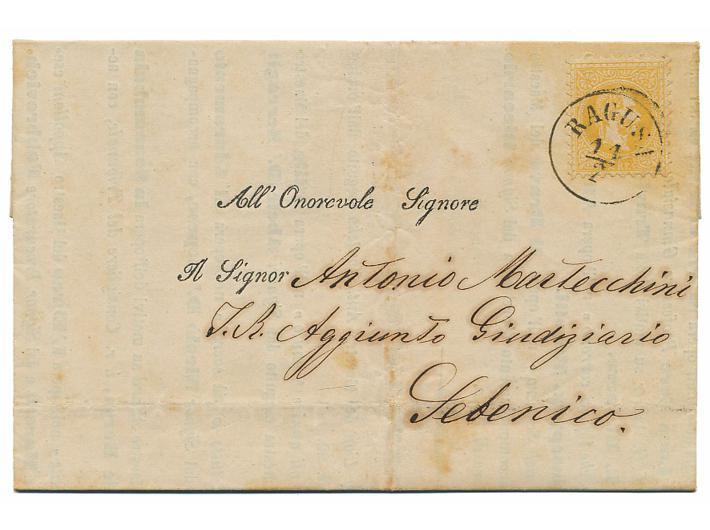 RAGUSA
11/2
All' Onorevole Signore
Il Signor Antonio Martecchini
I. R. Aggiunto Giudiziario
Sebenico.